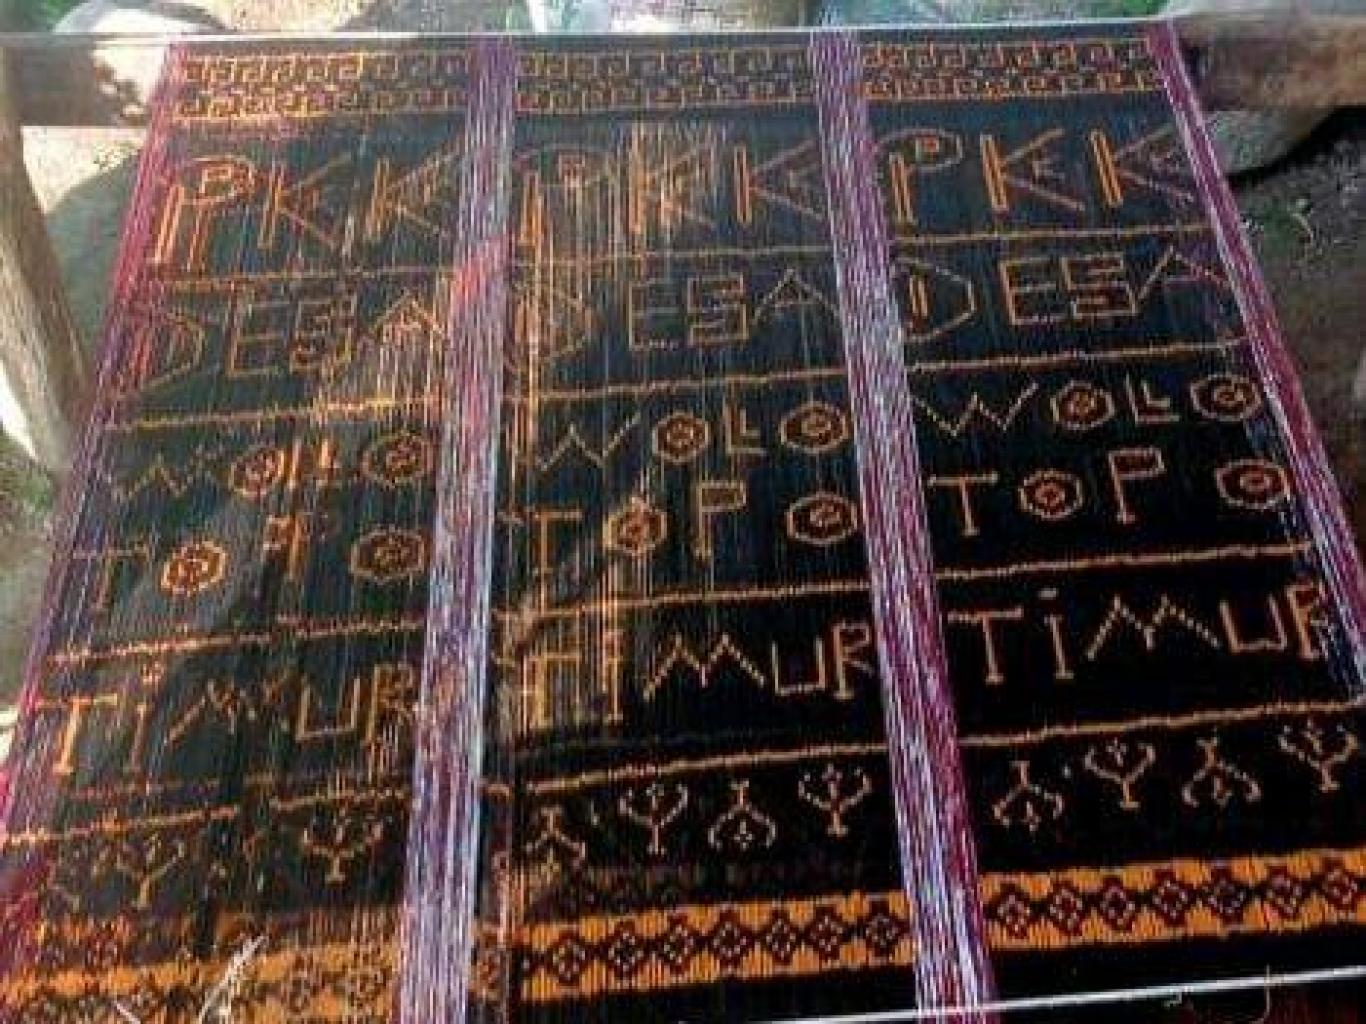 PKK PKK PKK
DESA DESA DESA
WOLO WOLO WOLO
TOPO TOPO TOPO
TIMUR TIMUR TIMUR